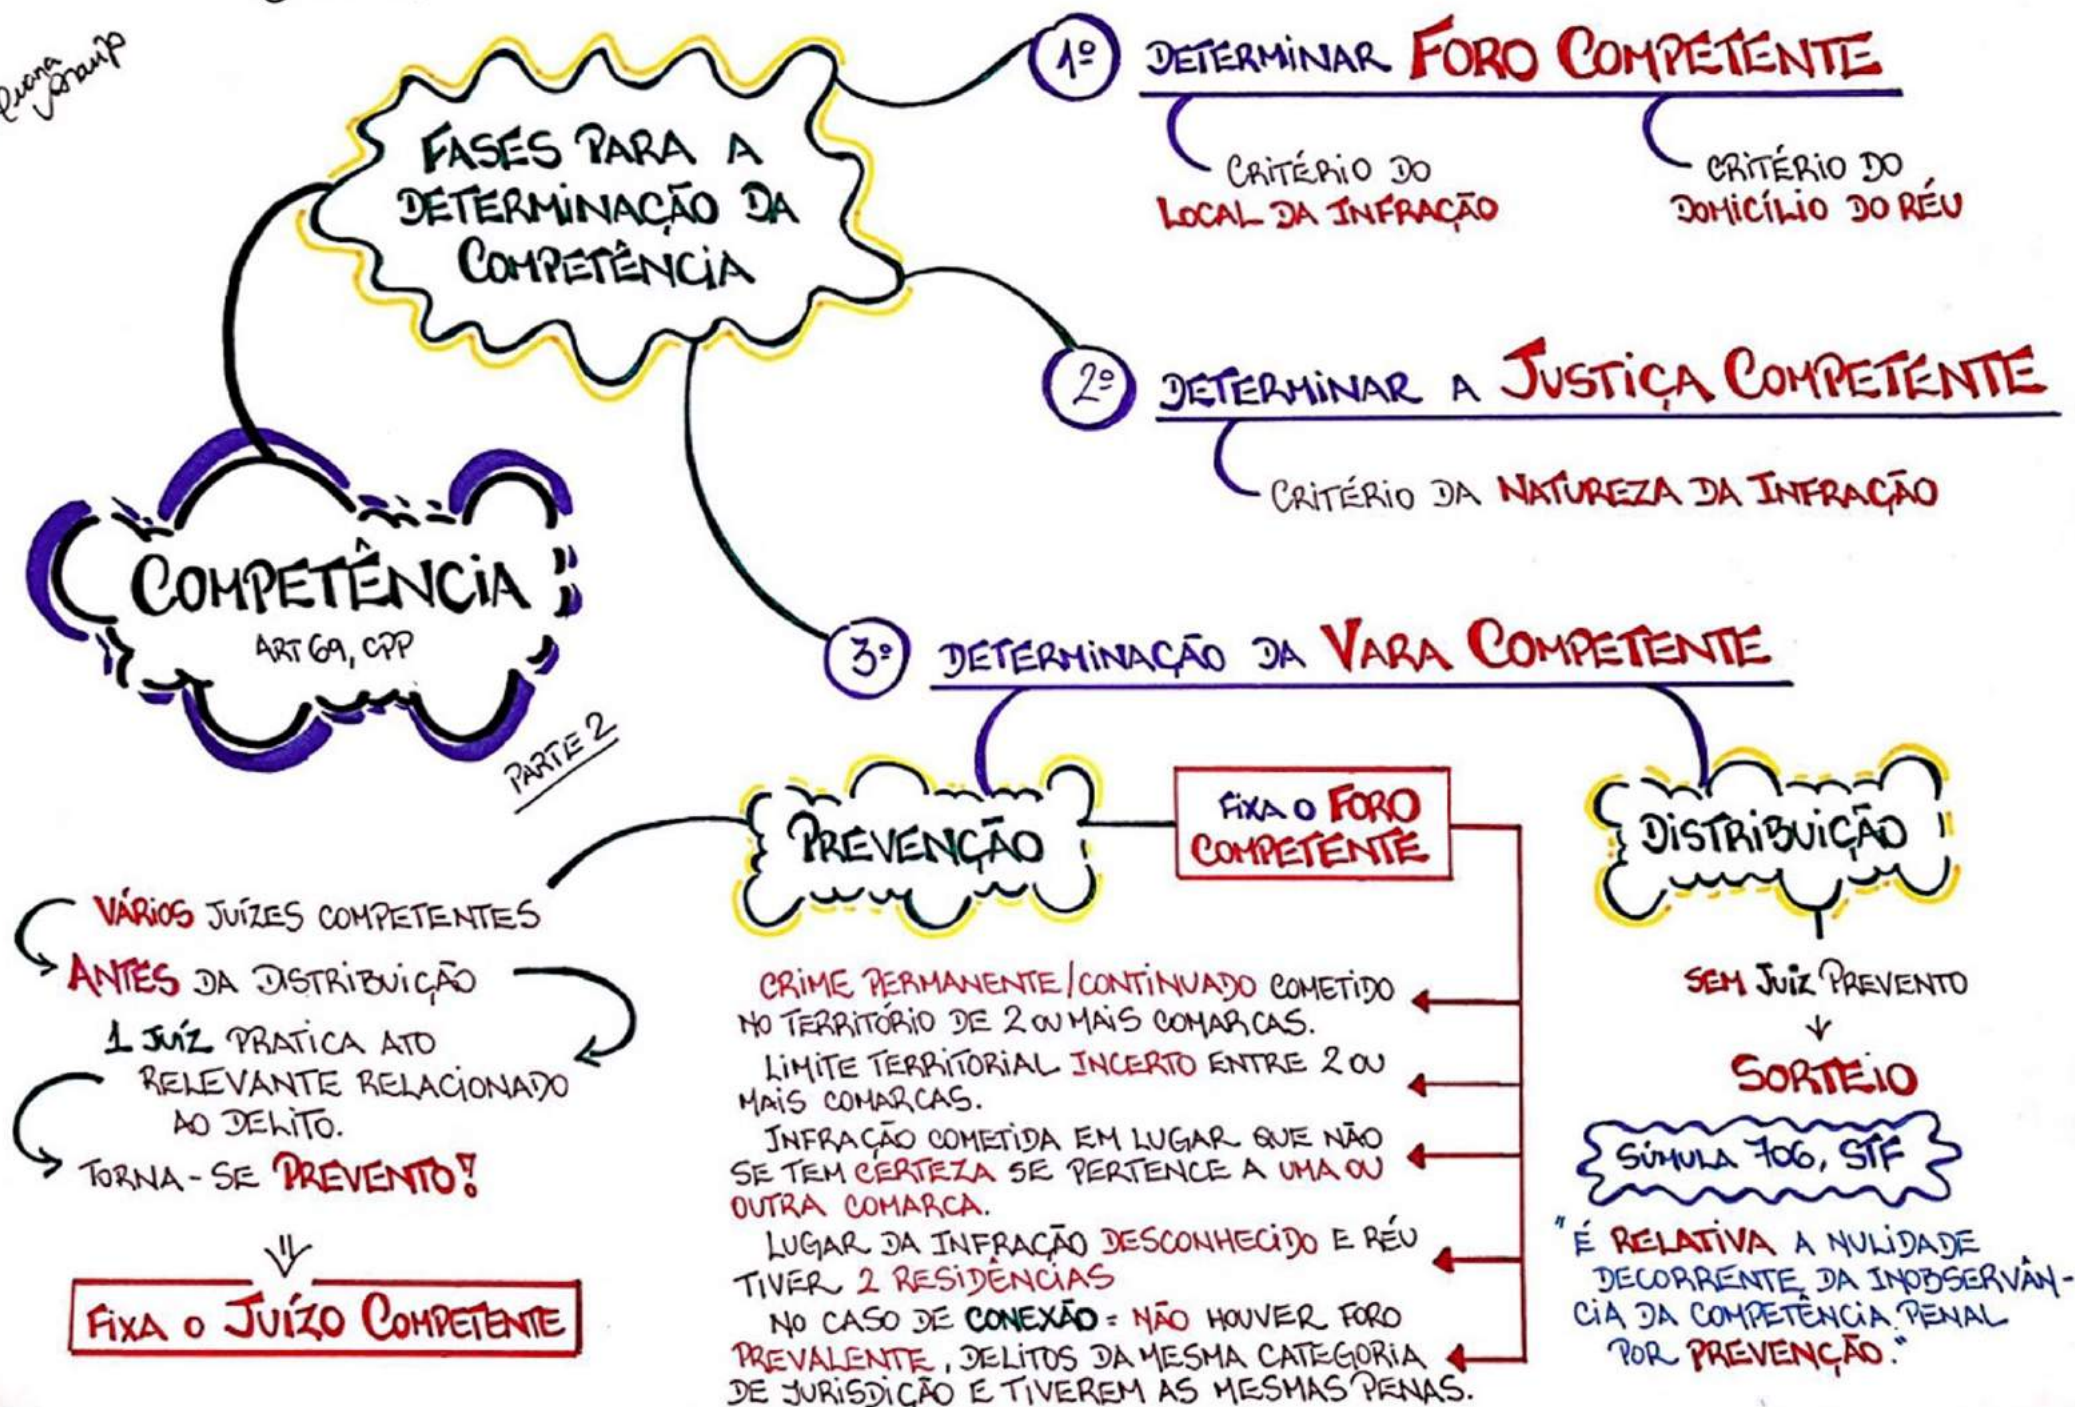 FASES PARA A
DETERMINAÇÃO DA
COMPETÊNCIA
COMPETÊNCIA
ART 69, CPP
PARTE 2
1º DETERMINAR FORO COMPETENTE
CRITÉRIO DO
LOCAL DA INFRAÇÃO
CRITÉRIO DO
DOMICÍLIO DO RÉU
2º DETERMINAR A JUSTIÇA COMPETENTE
CRITÉRIO DA NATUREZA DA INFRAÇÃO
3º DETERMINAÇÃO DA VARA COMPETENTE
PREVENÇÃO
VÁRIOS JUÍZES COMPETENTES
ANTES DA DISTRIBUIÇÃO
1 JUÍZ PRATICA ATO
RELEVANTE RELACIONADO
AO DELITO.
TORNA-SE PREVENTO!
FIXA O JUÍZO COMPETENTE
FIXA O FORO
COMPETENTE
CRIME PERMANENTE/CONTINUADO COMETIDO
NO TERRITÓRIO DE 2 OU MAIS COMARCAS.
LIMITE TERRITORIAL INCERTO ENTRE 2 OU
MAIS COMARCAS.
INFRAÇÃO COMETIDA EM LUGAR QUE NÃO
SE TEM CERTEZA SE PERTENCE A UMA OU
OUTRA COMARCA.
LUGAR DA INFRAÇÃO DESCONHECIDO E RÉU
TIVER 2 RESIDÊNCIAS
NO CASO DE CONEXÃO = NÃO HOUVER FORO
PREVALENTE, DELITOS DA MESMA CATEGORIA
DE JURISDIÇÃO E TIVEREM AS MESMAS PENAS.
DISTRIBUIÇÃO
SEM JUIZ PREVENTO
SORTEIO
SÚMULA 706, STF
"É RELATIVA A NULIDADE
DECORRENTE DA INOBSERVÂN-
CIA DA COMPETÊNCIA PENAL
POR PREVENÇÃO."